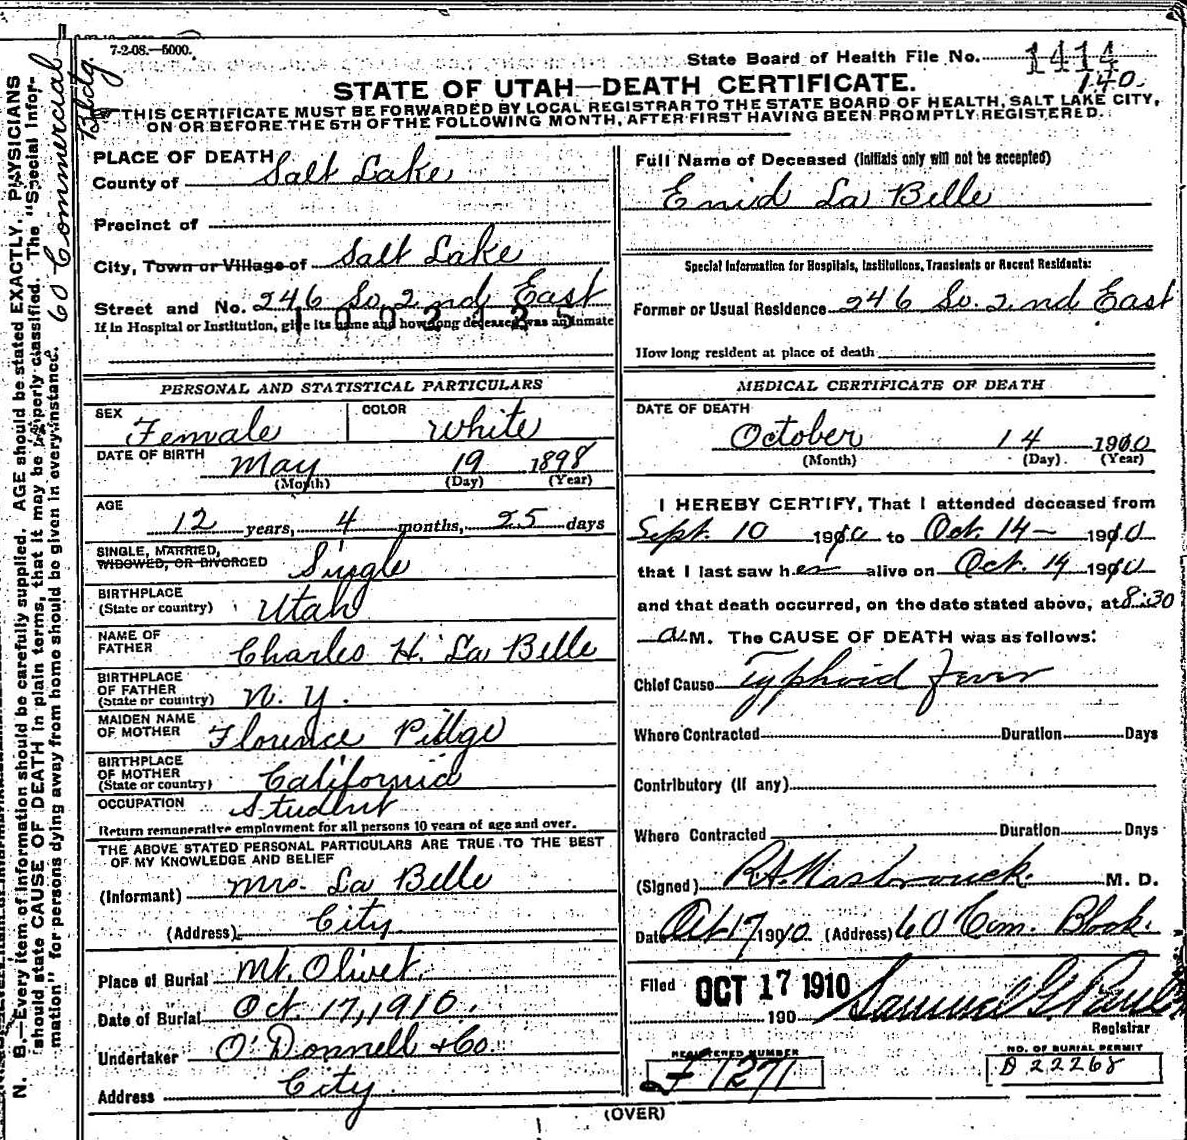 7-2-08.—5000.
State Board of Health File No. 1414
140.
STATE OF UTAH—DEATH CERTIFICATE.
THIS CERTIFICATE MUST BE FORWARDED BY LOCAL REGISTRAR TO THE STATE BOARD OF HEALTH, SALT LAKE CITY,
ON OR BEFORE THE 5TH OF THE FOLLOWING MONTH, AFTER FIRST HAVING BEEN PROMPTLY REGISTERED.
PLACE OF DEATH
County of Salt Lake
Precinct of
City, Town or Village of Salt Lake
Street and No. 246 So. 2nd East
1002125
If in Hospital or Institution, give its name and how long deceased was an inmate
Full Name of Deceased (Initials only will not be accepted)
Enid La Belle
Special Information for Hospitals, Institutions, Transients or Recent Residents:
Former or Usual Residence 246 So. 2nd East
How long resident at place of death
PERSONAL AND STATISTICAL PARTICULARS
SEX Female
COLOR White
DATE OF BIRTH May 19 1898
(Month) (Day) (Year)
AGE
12 years, 4 months, 25 days
SINGLE, MARRIED,
WIDOWED, OR DIVORCED Single
BIRTHPLACE
(State or country) Utah
NAME OF
FATHER Charles H. La Belle
BIRTHPLACE
OF FATHER
(State or country) N. Y.
MAIDEN NAME
OF MOTHER Florence
BIRTHPLACE
OF MOTHER
(State or country) California
OCCUPATION Student
Return remunerative employment for all persons 10 years of age and over.
THE ABOVE STATED PERSONAL PARTICULARS ARE TRUE TO THE BEST
OF MY KNOWLEDGE AND BELIEF
(Informant) Mrs. La Belle
(Address) City
Place of Burial Mt. Olivet.
Date of Burial Oct. 17, 1910.
Undertaker O'Donnell & Co.
Address City
MEDICAL CERTIFICATE OF DEATH
DATE OF DEATH
October 14 1910
(Month) (Day) (Year)
I HEREBY CERTIFY, That I attended deceased from
Sept. 10 1910 to Oct. 14 — 1910
that I last saw her alive on Oct. 14 1910
and that death occurred, on the date stated above, at 8:30
a M. The CAUSE OF DEATH was as follows:
Chief Cause Typhoid Fever
Where Contracted Duration Days
Contributory (if any)
Where Contracted Duration Days
(Signed) R.A. Hasbrouck. M. D.
Date Oct 17 1910 (Address) 60 Com. Block.
Filed OCT 17 1910
190 Samuel G. Paul
Registrar
REGISTERED NUMBER
F 1271
NO. OF BURIAL PERMIT
D 22268
(OVER)
N. B.—Every item of information should be carefully supplied. AGE should be stated EXACTLY. PHYSICIANS
should state CAUSE OF DEATH in plain terms, that it may be properly classified. The "Special Infor-
mation" for persons dying away from home should be given in every instance.
60 Commercial
Bldg